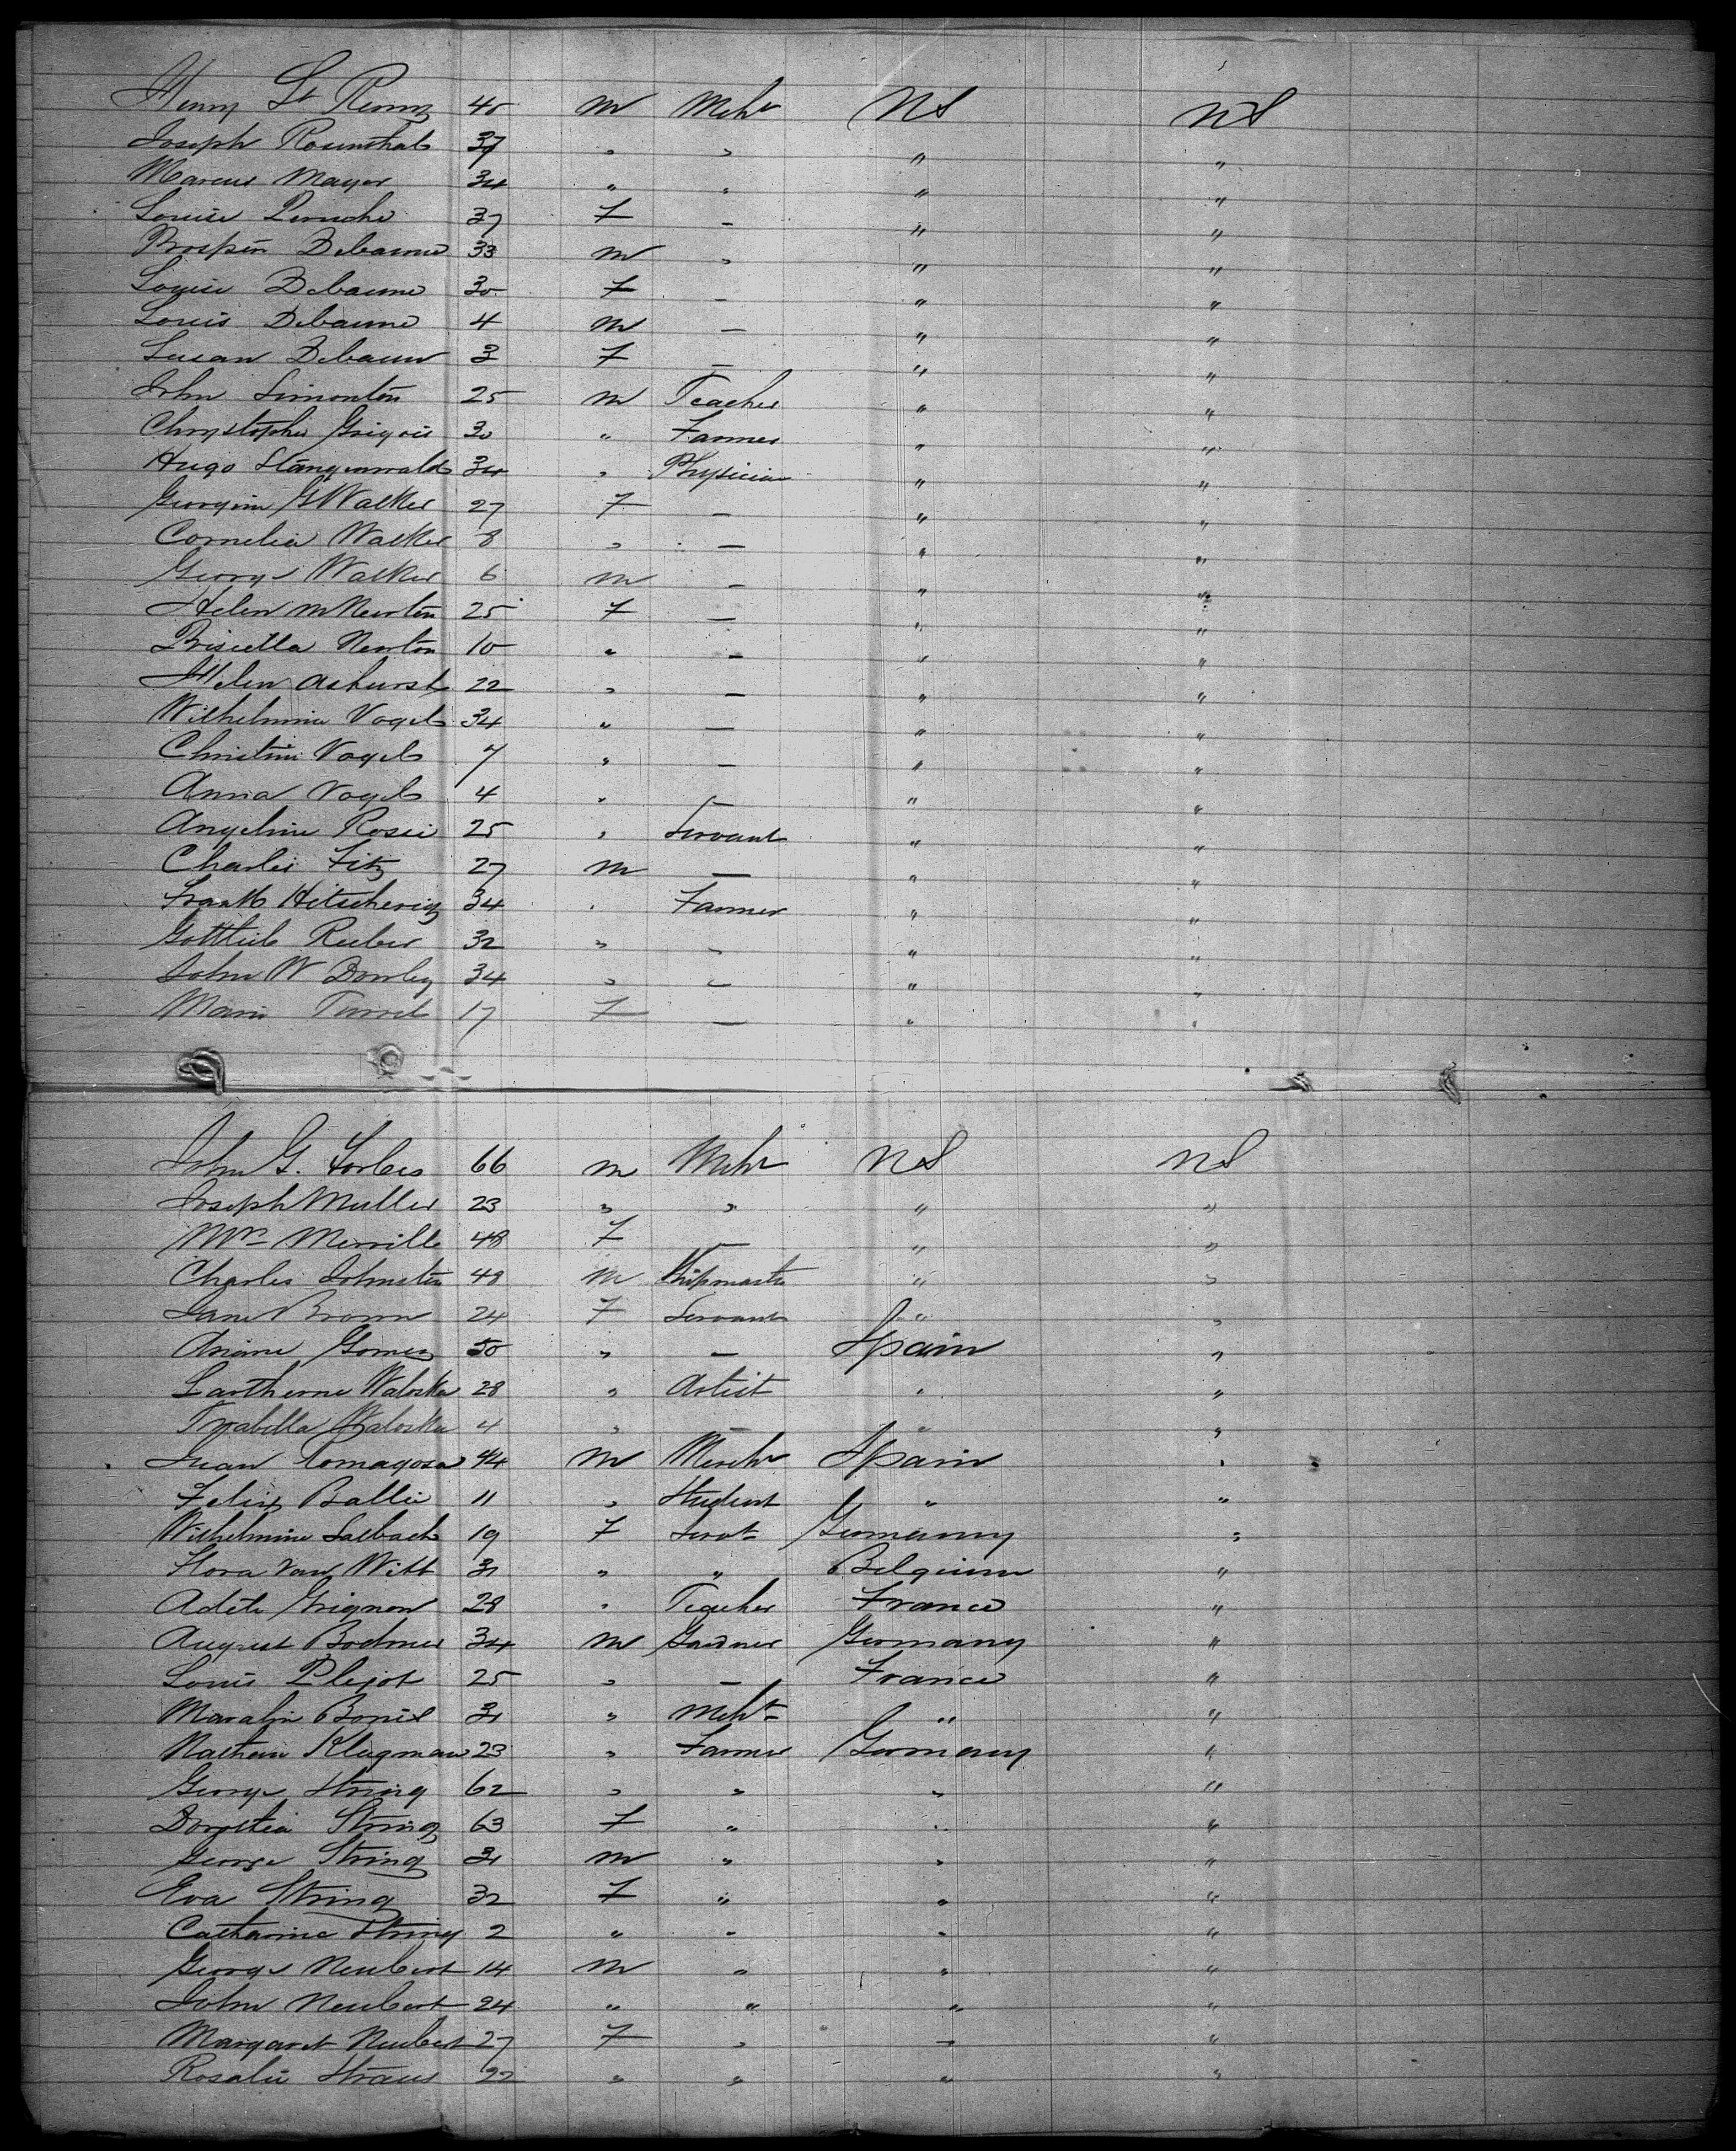 Henry St Remy 40 m Mcht US US
Joseph Rosenthal 37 " " " "
Marcus Mayer 34 " " " "
Louise Peruche 37 F — " "
Prosper Debaune 33 m " " "
Louise Debaune 30 F — " "
Louis Debaune 4 m — " "
Susan Debaune 3 F — " "
John Simonton 25 m Teacher " "
Chrystophe 30 " Farmer " "
Hugo Stangenwald 34 " Physician " "
Georgina G Walker 27 F — " "
Cornelia Walker 8 " — " "
George Walker 6 m — " "
Helen M Newton 25 F — " "
Priscilla Newton 10 " — " "
Helen Ashurst 22 " — " "
Wilhelmina Vogels 34 " — " "
Christine Vogels 7 " — " "
Anna Vogels 4 " — " "
Angeline Rosei 25 " Servant " "
Charles Fitz 27 m — " "
Frank 34 " Farmer " "
Gottlieb Reeber 32 " — " "
John W Dowley 34 " — " "
Marie 17 F — " "
John G. Forbes 66 m Mcht US US
Joseph Muller 23 " " " "
Mrs Merrille 48 F — " "
Charles Johnston 48 m Shipmaster " "
Jane Brown 24 F Servant " "
Gomez 50 " — Spain "
Waloska 28 " Artist " "
Ysabella Waloska 4 " — " "
Juan Romagosa 44 m Mercht Spain "
Felix Balli 11 " Student " "
Wilhelmine Salbach 19 F Servt Germany "
Flora Van Witt 31 " " Belgium "
Adele Grignon 28 " Teacher France "
August Bodmer 34 m Gardner Germany "
Louis Plejot 25 " — France "
Bonis 31 " Mcht " "
Nathan Klugman 23 " Farmer Germany "
George String 62 " " " "
Dorothea String 63 F " " "
George String 31 m " " "
Eva String 32 F " " "
Catharine String 2 " " " "
George Neubert 14 m " " "
John Neubert 24 " " " "
Margaret Neubert 27 F " " "
Rosalie Straus 22 " " " "